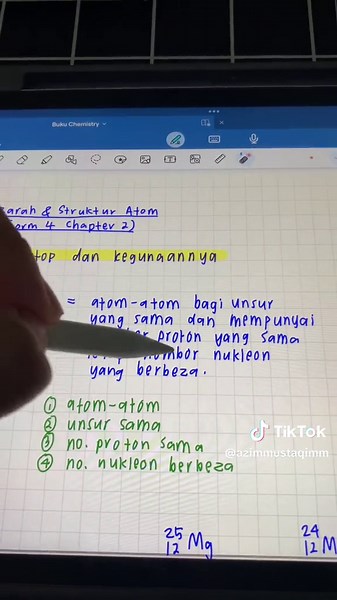 Buku Chemistry
arah & Struktur Atom
orm 4 Chapter 2)
top dan kegunaannya
= atom-atom bagi unsur
yang sama dan mempunyai
proton yang sama
nombor nukleon
yang berbeza.
① atom-atom
② unsur sama
③ no. proton sama
④ no. nukleon berbeza
TikTok
@azimmustaqimm
25 24
12 Mg 12 M